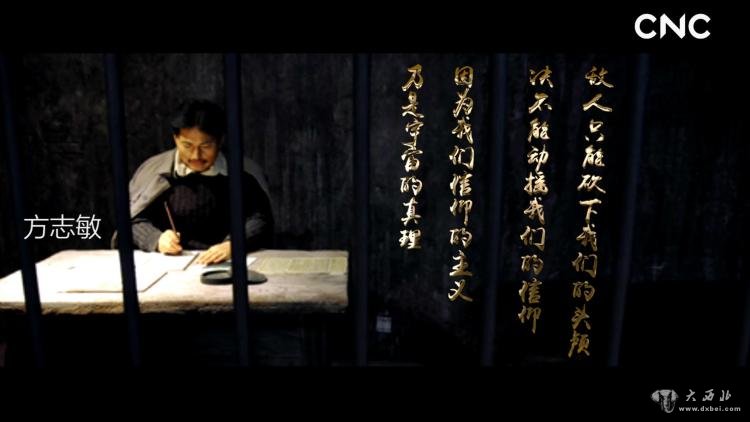 CNC
敌人只能砍下我们的头颅
决不能动摇我们的信仰
因为我们信仰的主义
乃是宇宙的真理
方志敏
大西北
www.dxbei.com